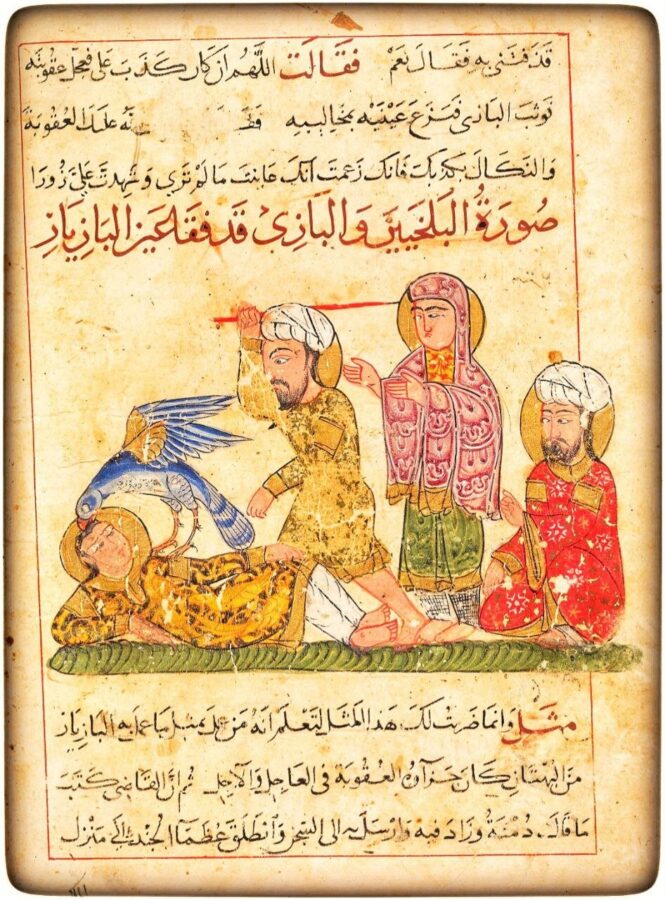 قذفتني به فقال نعم فقالت اللهم ان كان كذب على فعجل عقوبته
فوثب البازى فنزع عينيه بمخاليبه العقوبة
والنكال بكذبك فانك زعمت انك عاينت ما لم ترى وشهدت على زورا
صورة البلخيين والبازى قد فقا عين البازيار
مثل وانما ضربت لك هذا المثل لتعلم انه من عمل بمثل ما عمل به البازيار
من البهتان كان جزآؤه العقوبة فى العاجل والآجل ثم ان القاضى كتب
ما قال دمنة وزاد فيه وارسل به الى السجن وانطلق عظمآ الجند الى منزل